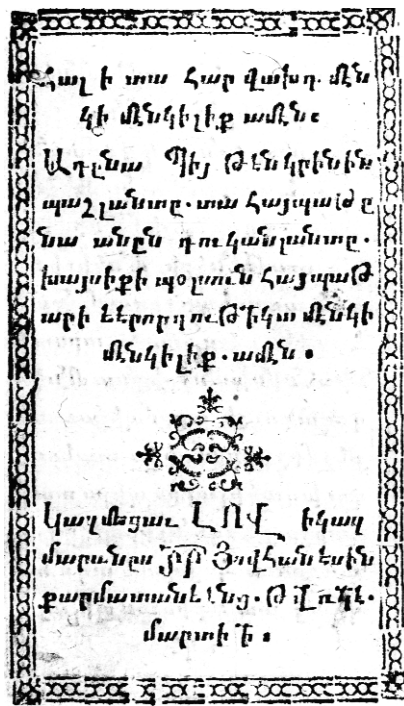 Հալ ի տա Հար վախդ. մէն
կի մէնկիլիք ամէն։
Ադընա Պիյ Թէնկրինին
պաշլանտը. տա Հայպաթ ը
նա անըն դուկանլանտը.
խայսիքի պօլսուն Հայպաթ
արի էրրորդութիկա մէնկի
մէնկիլիք. ամէն ։
Կազմեցաւ ԼՈՎ իկաղ
Յովհաննէսին
քարմատանէնց. Թվ ՌԿԷ.
մարտի Ի ։